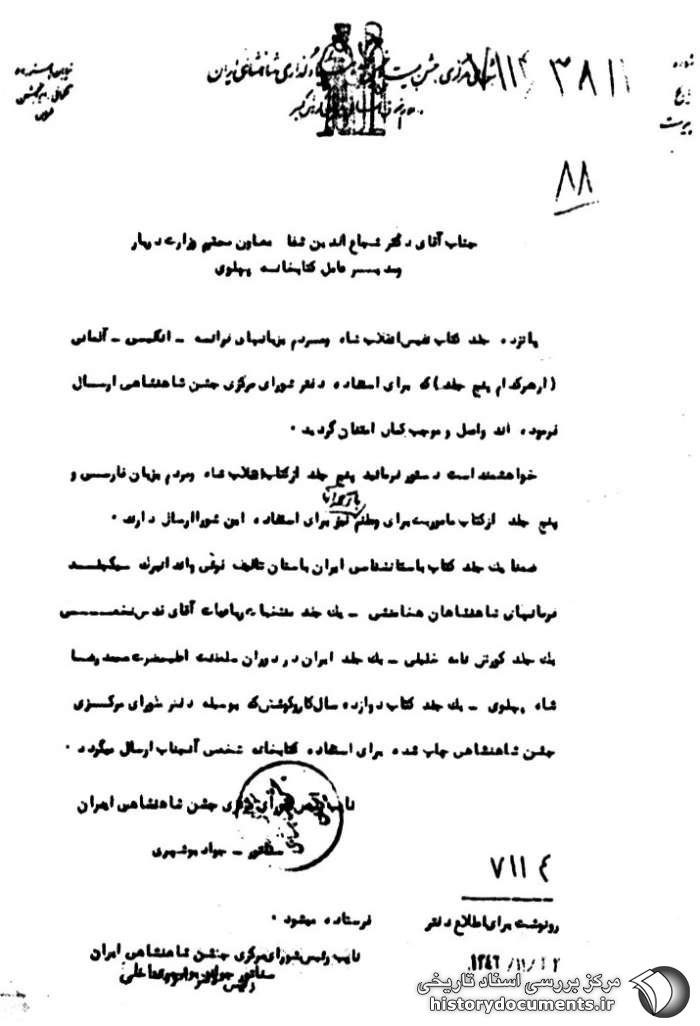 شماره
تاریخ
پیوست
شورای مرکزی جشن بنیانگذاری شاهنشاهی ایران
۳۸۱۱
۸۸
جناب آقای دکتر شجاع الدین شفا معاون محترم وزارت دربار
ومدیر عامل کتابخانه پهلوی
پانزده جلد کتاب نفیس انقلاب شاه ومردم بزبانهای فرانسه - انگلیسی - آلمانی
(ازهرکدام پنج جلد) که برای استفاده دفتر شورای مرکزی جشن شاهنشاهی ارسال
فرموده اند واصل و موجب کمال امتنان گردید .
خواهشمند است دستور فرمائید پنج جلد ازکتاب انقلاب شاه ومردم بزبان فارسی و
پنج جلد ازکتاب ماموریت برای وطنم نیز برای استفاده این شورا ارسال دارند .
ضمنا یک جلد کتاب باستانشناسی ایران باستان تالیف لوئی واندانبرگ یکجلد
فرمانهای شاهنشاهان هخامنشی - یک جلد رباعیات آقای
یک جلد کورش نامه خلیلی - یک جلد ایران در دوران سلطنت اعلیحضرت محمدرضا
شاه پهلوی - یک جلد کتاب دوازده سال کاروکوشش که بوسیله دفتر شورای مرکزی
جشن شاهنشاهی چاپ شده برای استفاده کتابخانه شخصی آنجناب ارسال میگردد .
نایب رئیس شورای مرکزی جشن شاهنشاهی ایران
سناتور - جواد بوشهری
۷۱۱۴
رونوشت برای اطلاع دفتر فرستاده میشود .
نایب رئیس شورای مرکزی جشن شاهنشاهی ایران
سناتور جواد بوشهری
مرکز بررسی اسناد تاریخی
historydocuments.ir